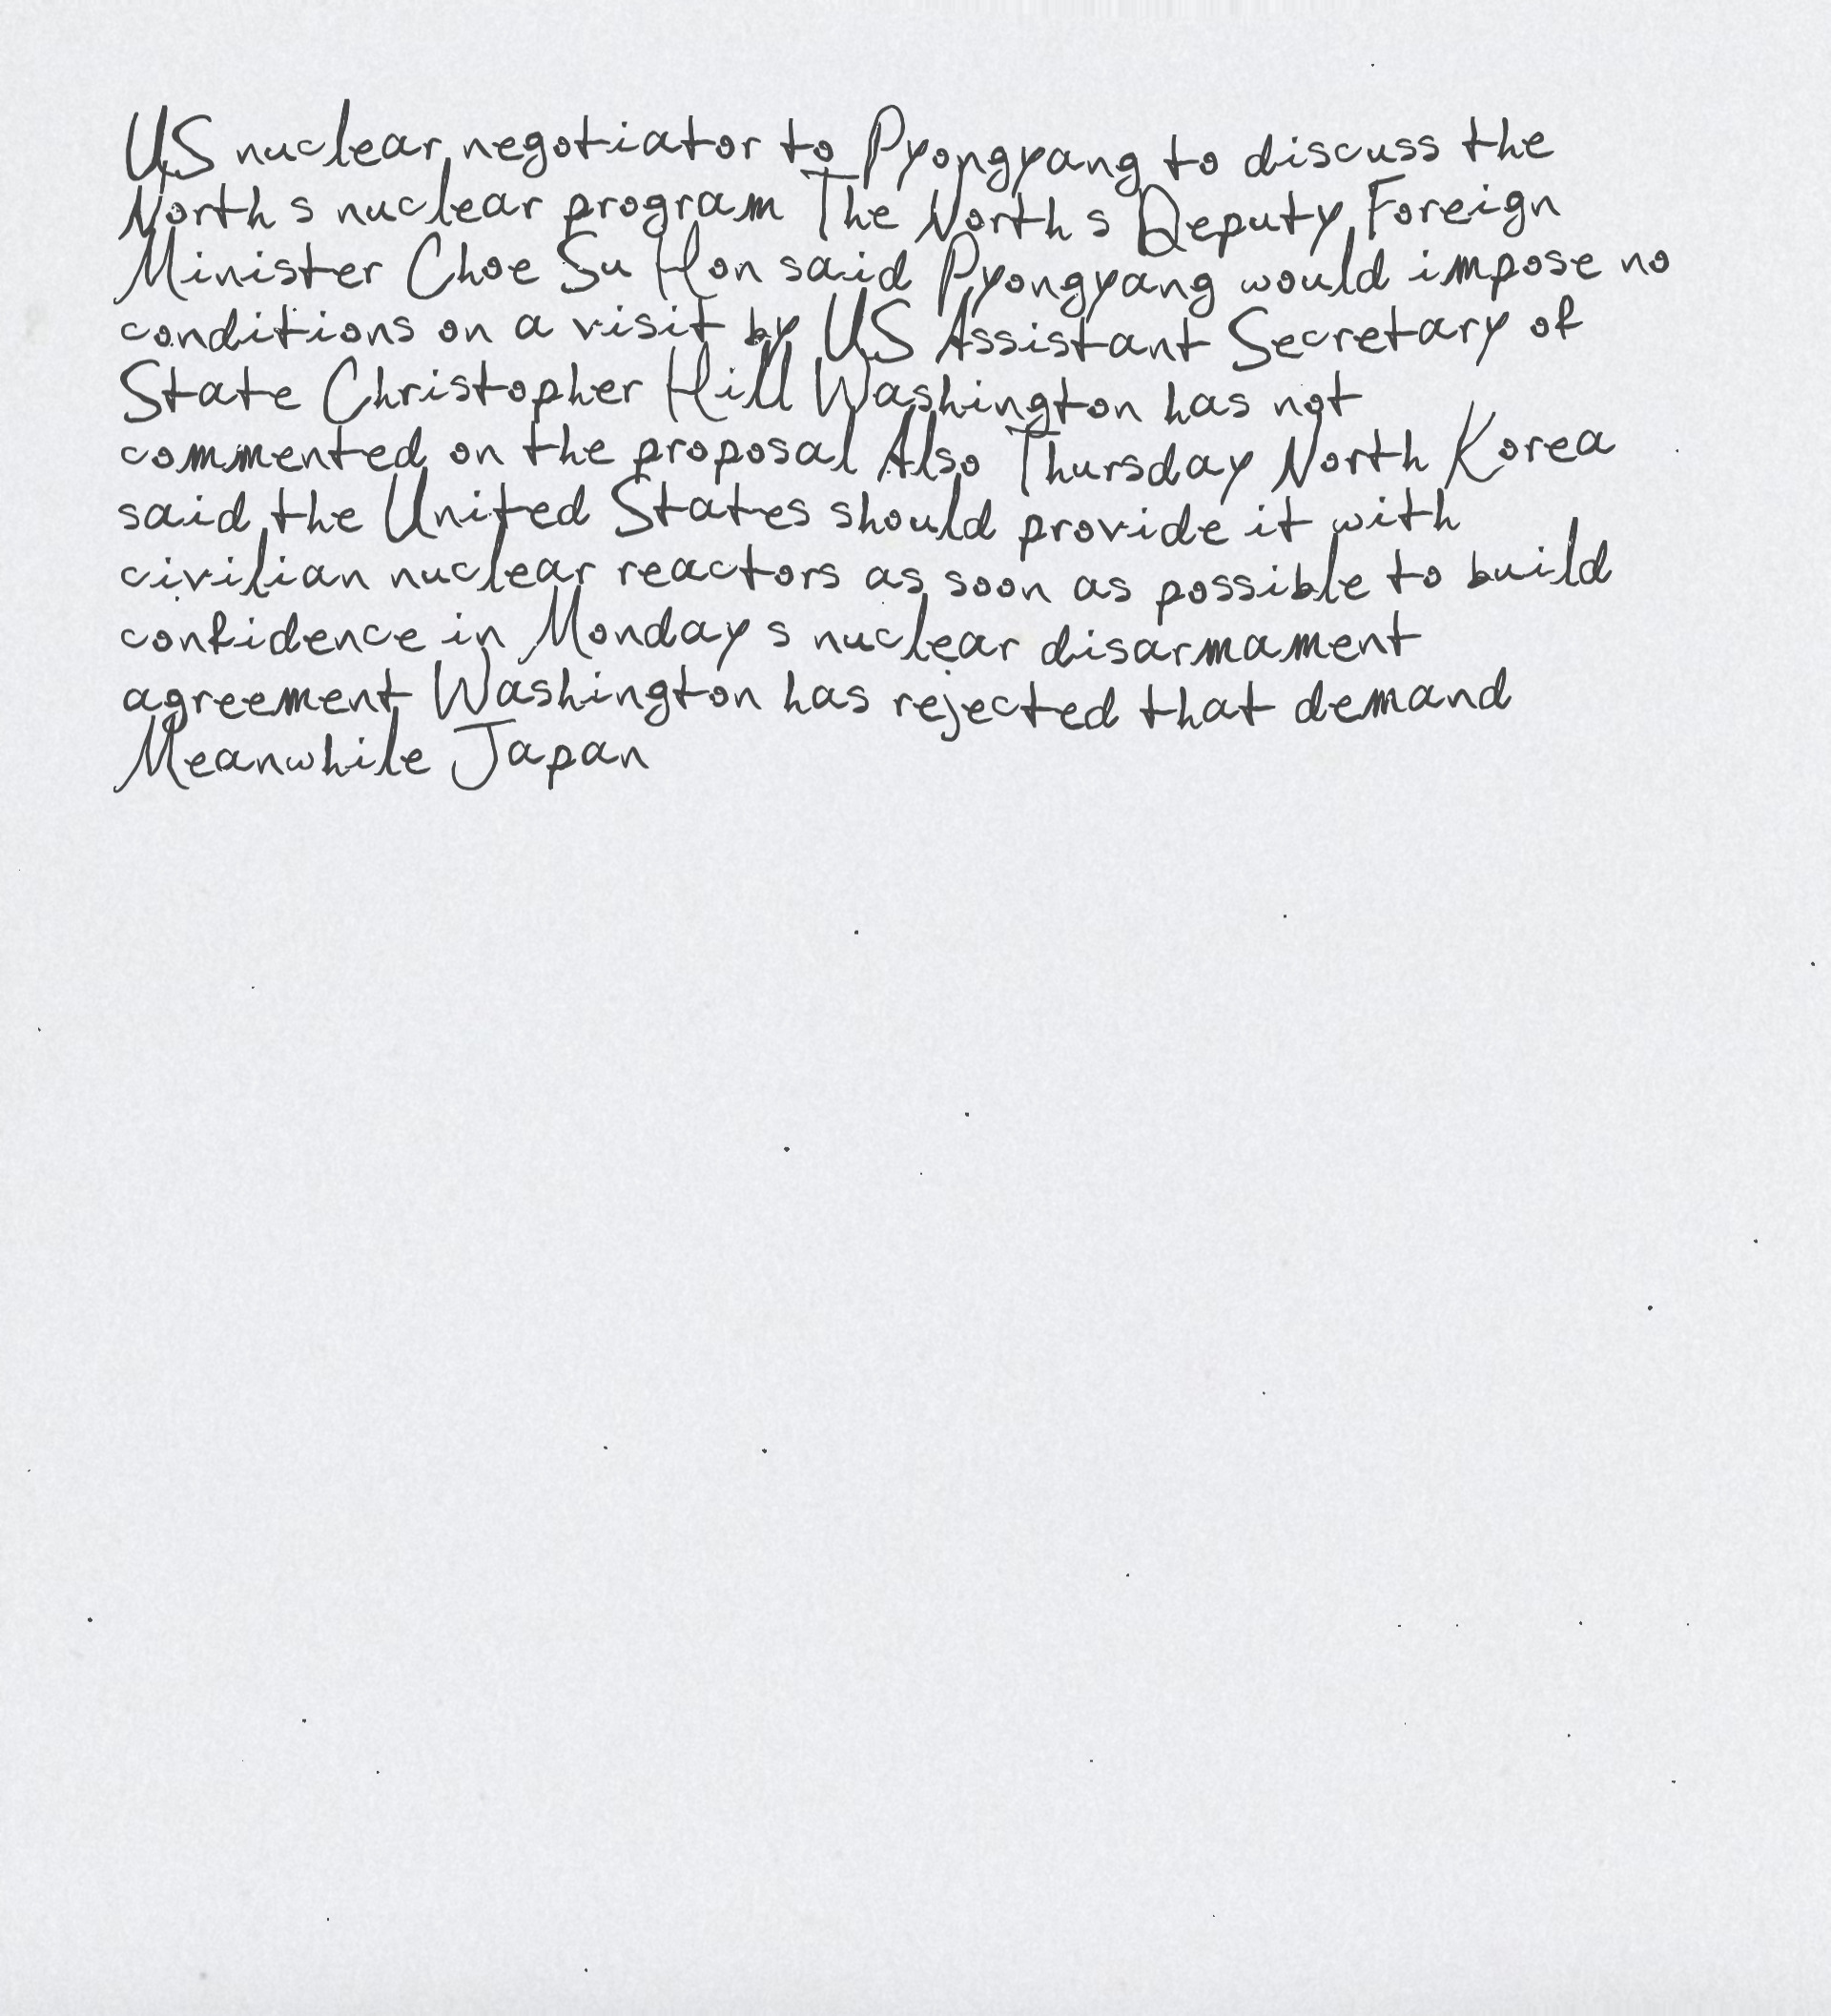 US nuclear negotiator to Pyongyang to discuss the
North s nuclear program The North s Deputy Foreign
Minister Choe Su Hon said Pyongyang would impose no
conditions on a visit by US Assistant Secretary of
State Christopher Hill Washington has not
commented on the proposal Also Thursday North Korea
said the United States should provide it with
civilian nuclear reactors as soon as possible to build
confidence in Monday s nuclear disarmament
agreement Washington has rejected that demand
Meanwhile Japan